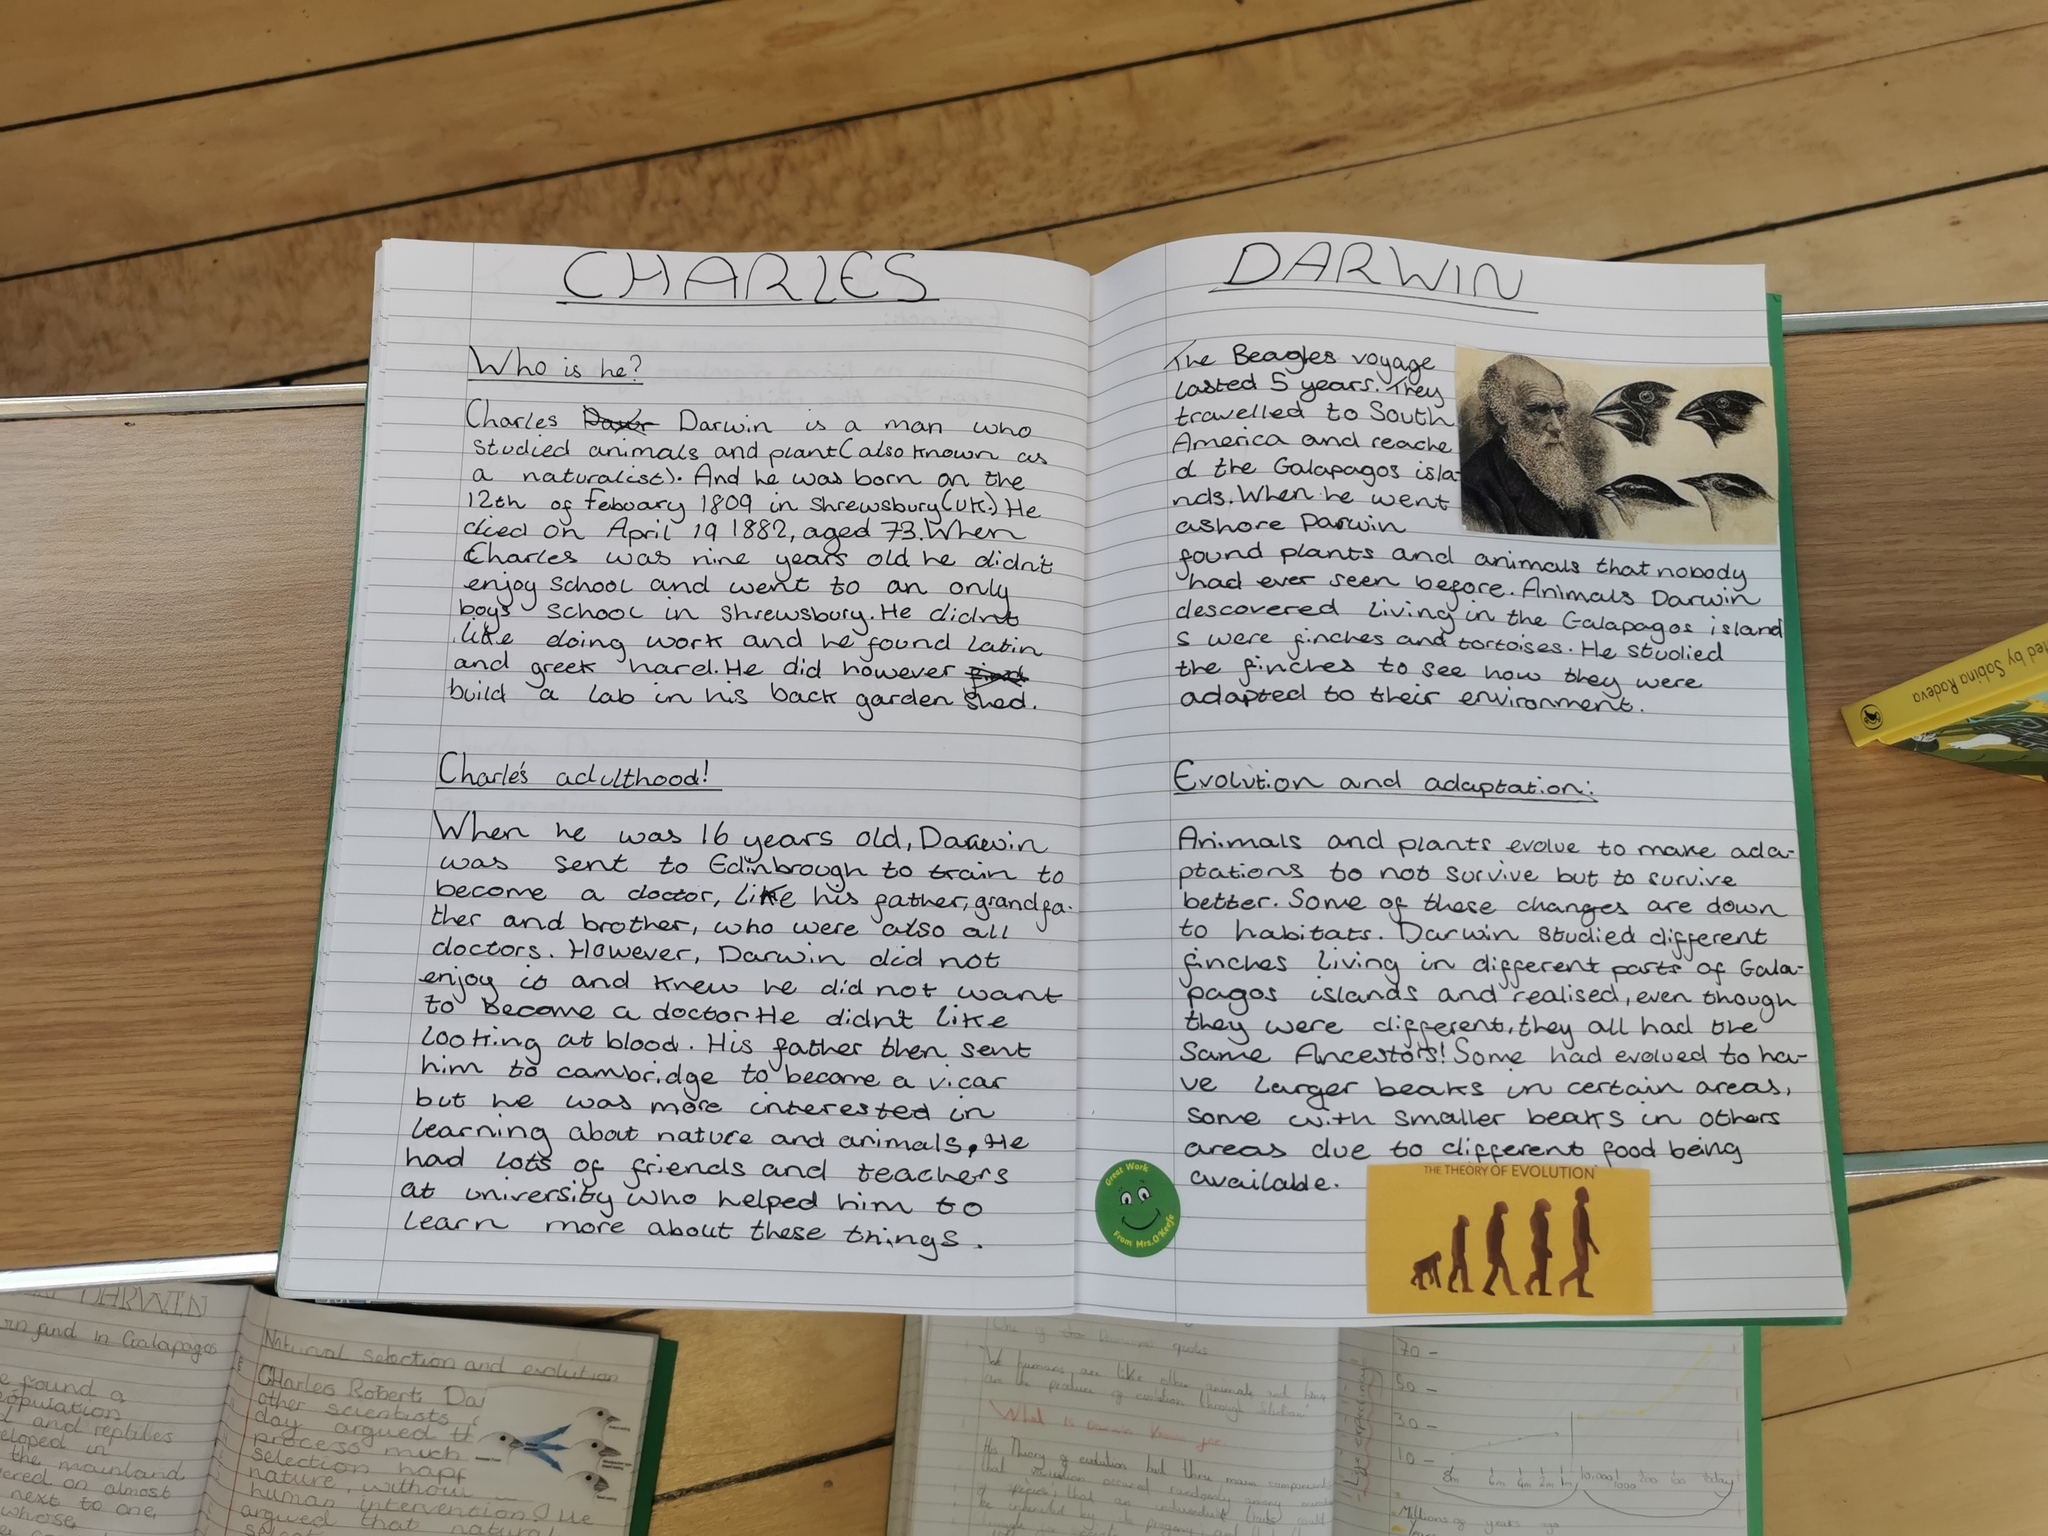 CHARLES
Who is he?
Charles Darwin is a man who
studied animals and plant(also known as
a naturalist). And he was born on the
12th of Febuary 1809 in Shrewsbury(UK.) He
died on April 19 1882, aged 73. When
Charles was nine years old he didn't
enjoy school and went to an only
boys school in Shrewsbury. He didnt
like doing work and he found Latin
and greek hard. He did however
build a lab in his back garden shed.
Charle's adulthood!
When he was 16 years old, Darwin
was sent to Edinbrough to train to
become a doctor, like his father, grandfa-
ther and brother, who were also all
doctors. However, Darwin did not
enjoy it and knew he did not want
to become a doctor. He didn't like
looking at blood. His father then sent
him to cambridge to become a vicar
but he was more interested in
learning about nature and animals. He
had lots of friends and teachers
at university who helped him to
learn more about these things.
DARWIN
The Beagles voyage
lasted 5 years. They
travelled to South
America and reache
d the Galapagos isla-
nds. When he went
ashore Darwin
found plants and animals that nobody
had ever seen before. Animals Darwin
descovered living in the Galapagos island
s were finches and tortoises. He studied
the finches to see how they were
adapted to their environment.
Evolution and adaptation:
Animals and plants evolve to make ada-
ptations to not survive but to survive
better. Some of these changes are down
to habitats. Darwin studied different
finches living in different parts of Gala-
pagos islands and realised, even though
they were different, they all had the
same Ancestors! Some had evolved to ha-
ve larger beaks in certain areas,
some with smaller beaks in others
areas due to different food being
available.
THE THEORY OF EVOLUTION
Great Work
From Mrs.O'Keefe
ted by Sabina Radeva
DARWIN
find in Galapagos
e found a
population
and reptiles
eloped in
the mainland
ered on almost
next to one
whose
Natural selection and evolution
Charles Robert Da
other scientists
day argued th
process much
selection happ
nature, without
human intervention. He
argued that natural
One of the Darwins quotes
We humans are like other animals and
are the produce of evolution through
What is Darwin known for
His Theory of evolution had three main components
that variation occured randomly among
of species; that an individual's
70 -
50 -
30 -
10 -
8m 6m 4m 2m 1m 10,000 1000 200 today
Millions of years ago